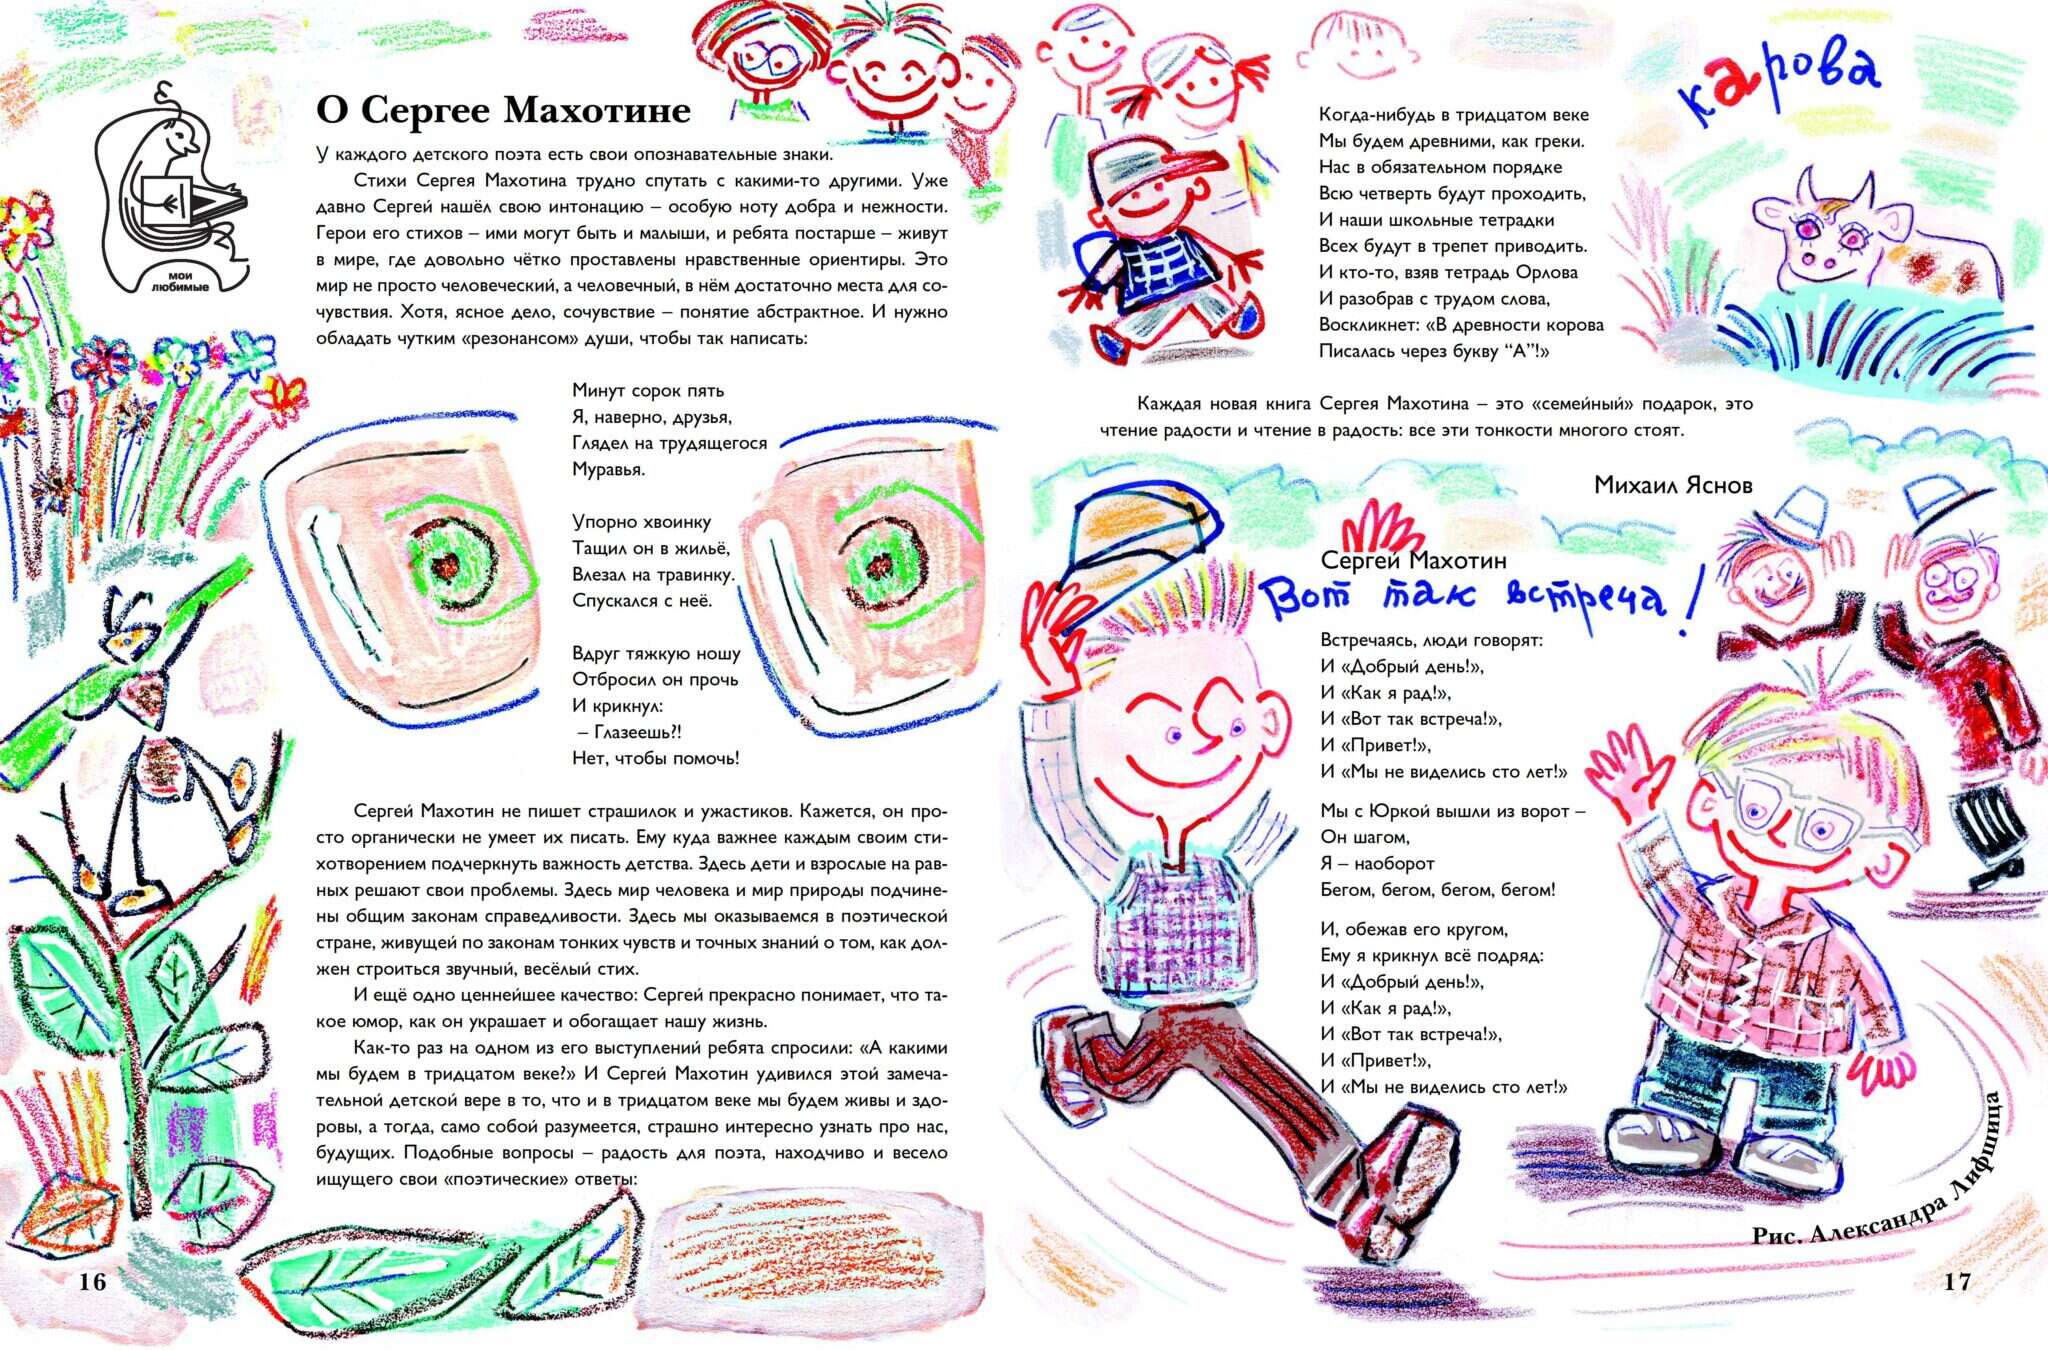 мои
любимые
О Сергее Махотине
У каждого детского поэта есть свои опознавательные знаки.
Стихи Сергея Махотина трудно спутать с какими-то другими. Уже
давно Сергей нашёл свою интонацию – особую ноту добра и нежности.
Герои его стихов – ими могут быть и малыши, и ребята постарше – живут
в мире, где довольно чётко проставлены нравственные ориентиры. Это
мир не просто человеческий, а человечный, в нём достаточно места для со-
чувствия. Хотя, ясное дело, сочувствие – понятие абстрактное. И нужно
обладать чутким «резонансом» души, чтобы так написать:
Минут сорок пять
Я, наверно, друзья,
Глядел на трудящегося
Муравья.
Упорно хвоинку
Тащил он в жильё,
Влезал на травинку.
Спускался с неё.
Вдруг тяжкую ношу
Отбросил он прочь
И крикнул:
– Глазеешь?!
Нет, чтобы помочь!
Сергей Махотин не пишет страшилок и ужастиков. Кажется, он про-
сто органически не умеет их писать. Ему куда важнее каждым своим сти-
хотворением подчеркнуть важность детства. Здесь дети и взрослые на рав-
ных решают свои проблемы. Здесь мир человека и мир природы подчине-
ны общим законам справедливости. Здесь мы оказываемся в поэтической
стране, живущей по законам тонких чувств и точных знаний о том, как дол-
жен строиться звучный, весёлый стих.
И ещё одно ценнейшее качество: Сергей прекрасно понимает, что та-
кое юмор, как он украшает и обогащает нашу жизнь.
Как-то раз на одном из его выступлений ребята спросили: «А какими
мы будем в тридцатом веке?» И Сергей Махотин удивился этой замеча-
тельной детской вере в то, что и в тридцатом веке мы будем живы и здо-
ровы, а тогда, само собой разумеется, страшно интересно узнать про нас,
будущих. Подобные вопросы – радость для поэта, находчиво и весело
ищущего свои «поэтические» ответы:
16
Когда-нибудь в тридцатом веке
Мы будем древними, как греки.
Нас в обязательном порядке
Всю четверть будут проходить,
И наши школьные тетрадки
Всех будут в трепет приводить.
И кто-то, взяв тетрадь Орлова
И разобрав с трудом слова,
Воскликнет: «В древности корова
Писалась через букву “А”!»
карова
Каждая новая книга Сергея Махотина – это «семейный» подарок, это
чтение радости и чтение в радость: все эти тонкости многого стоят.
Михаил Яснов
Сергей Махотин
Вот так встреча!
Встречаясь, люди говорят:
И «Добрый день!»,
И «Как я рад!»,
И «Вот так встреча!»,
И «Привет!»,
И «Мы не виделись сто лет!»
Мы с Юркой вышли из ворот –
Он шагом,
Я – наоборот
Бегом, бегом, бегом, бегом!
И, обежав его кругом,
Ему я крикнул всё подряд:
И «Добрый день!»,
И «Как я рад!»,
И «Вот так встреча!»,
И «Привет!»,
И «Мы не виделись сто лет!»
Рис. Александра Лифшица
17